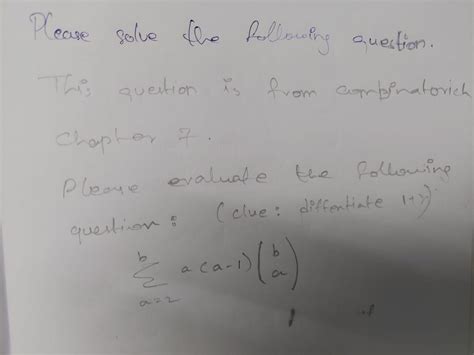 Please solve the following question.
This question is from combinatorich
chapter 7.
Please evaluate the following
question: (clue: differentiate 1+x)
b
∑ a(a-1) (b a)
a=2